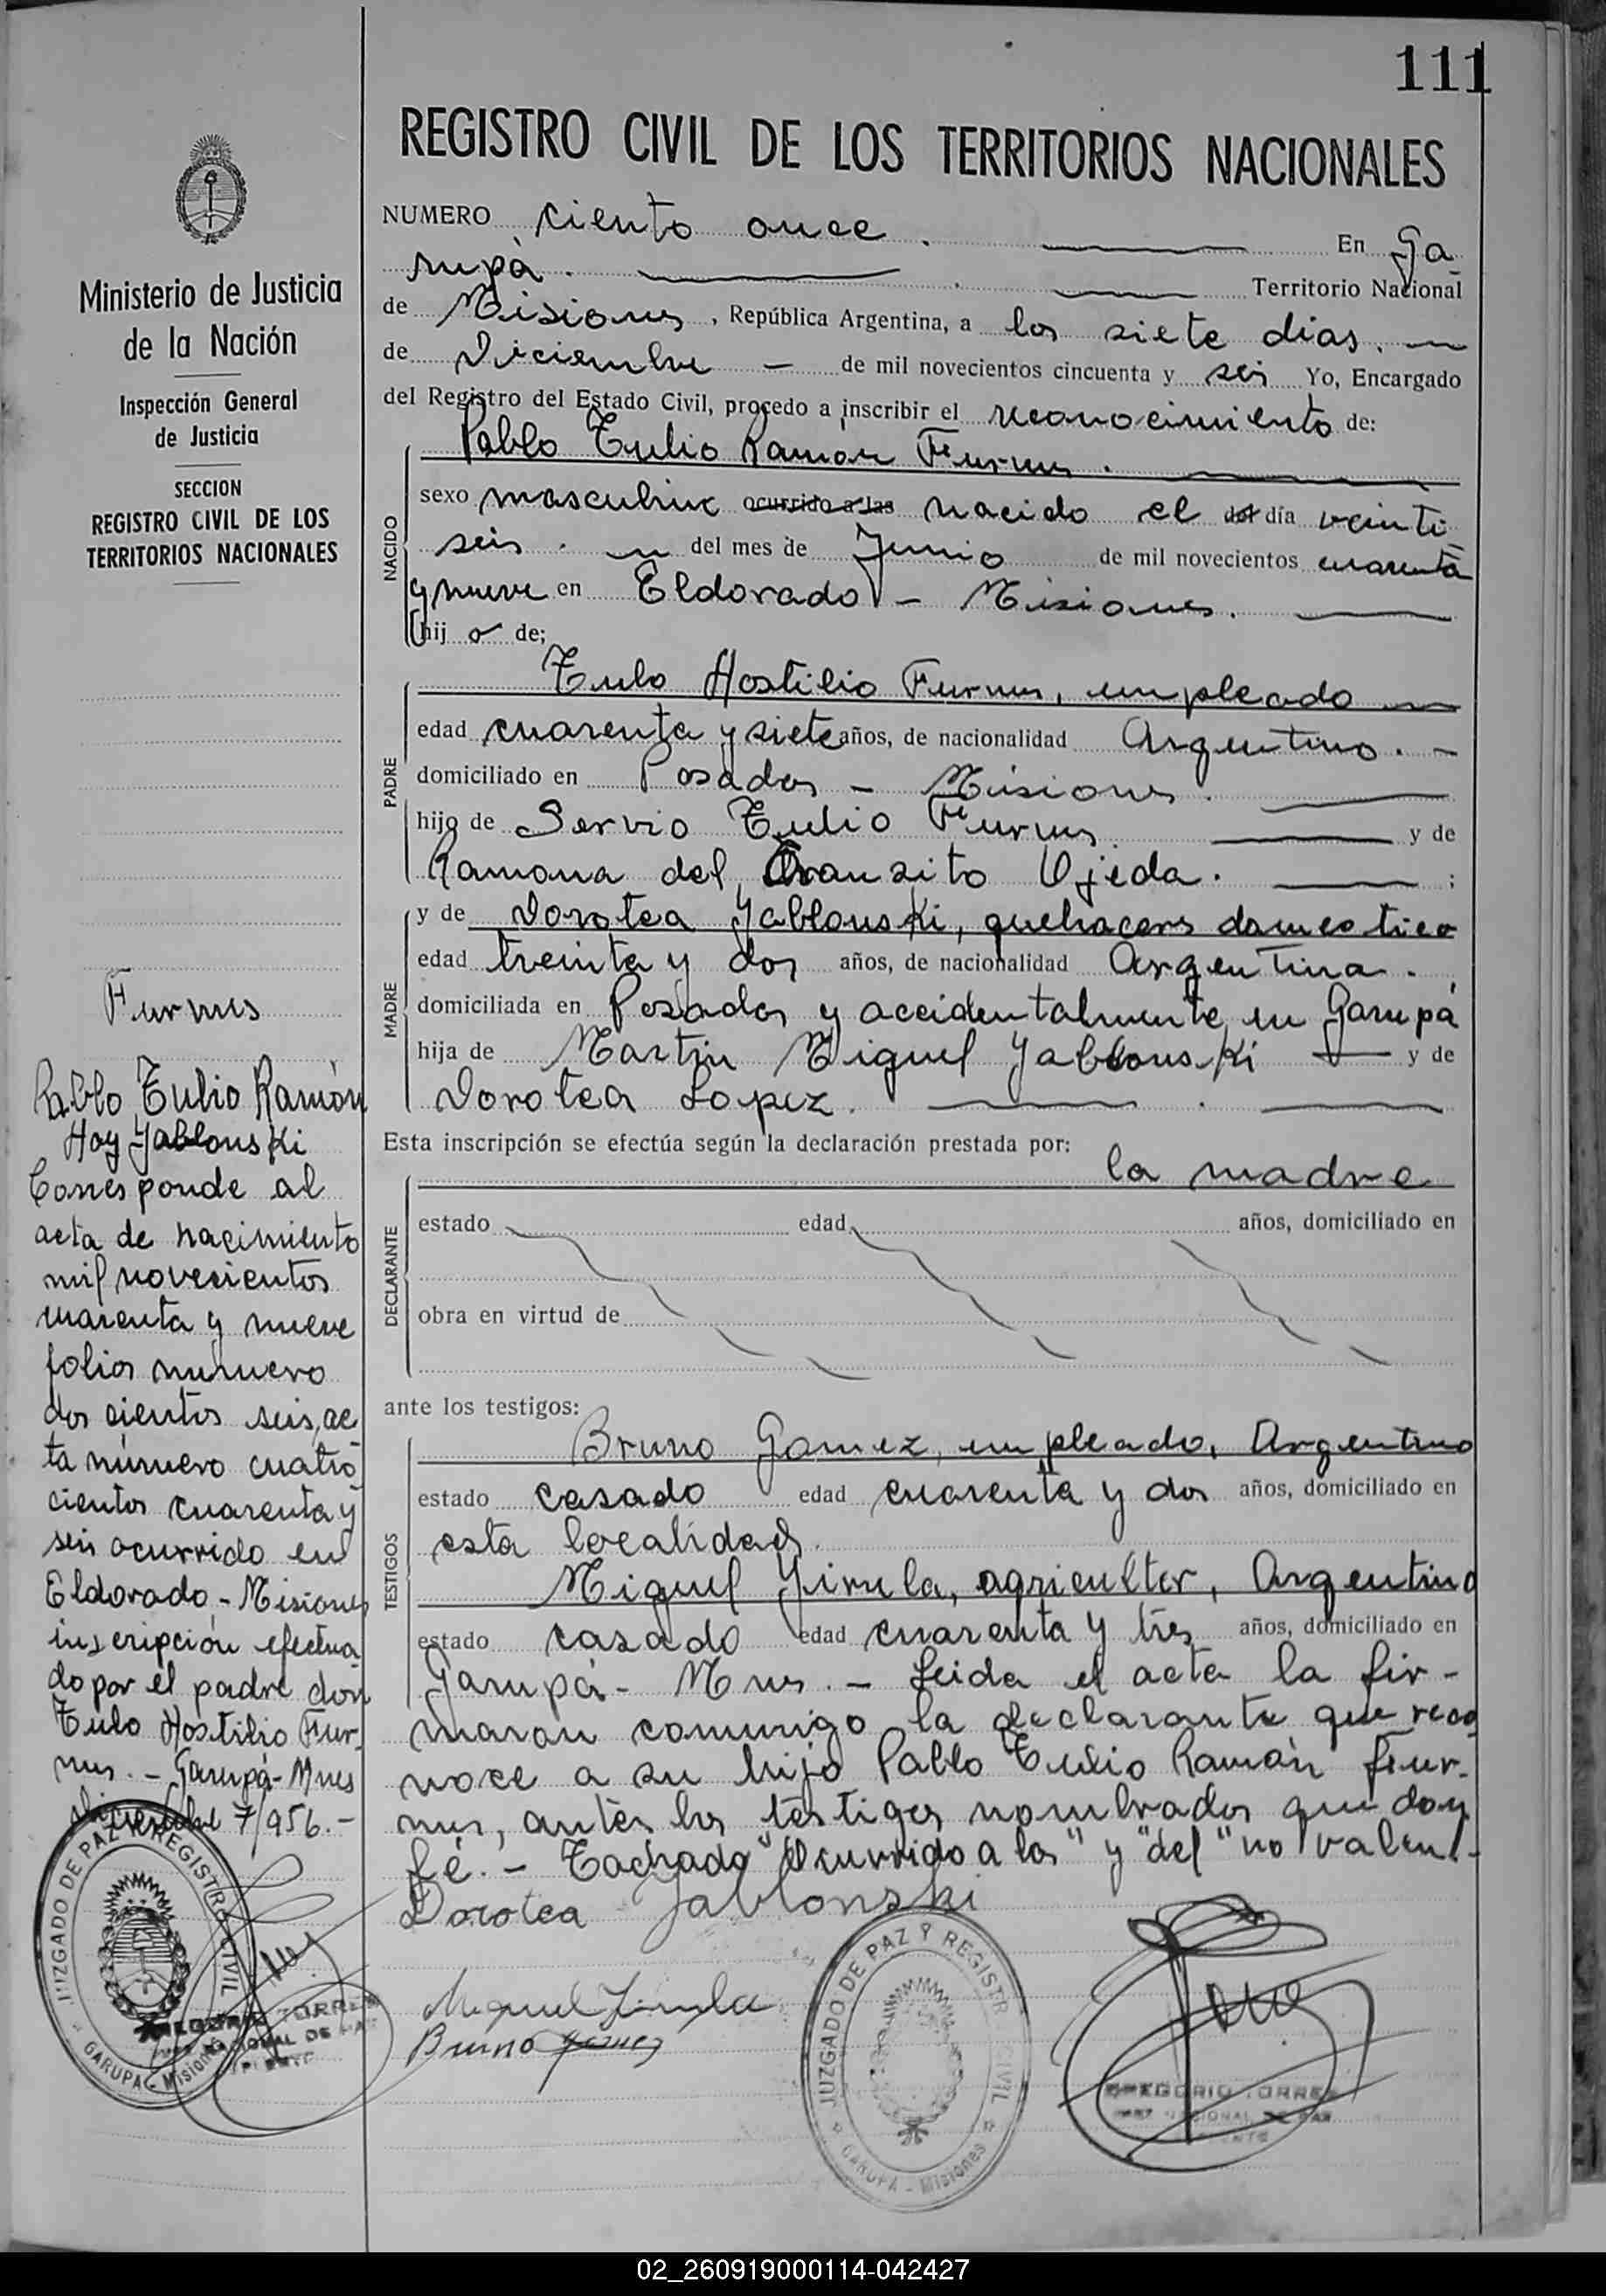 111
REGISTRO CIVIL DE LOS TERRITORIOS NACIONALES
Ministerio de Justicia
de la Nación
Inspección General
de Justicia
SECCION
REGISTRO CIVIL DE LOS
TERRITORIOS NACIONALES
Furnus
Pablo Tulio Ramón
Hoy Yablonski
Corresponde al
acta de nacimiento
mil novecientos
cuarenta y nueve
folios número
dos cientos seis, ac
ta número cuatro
cientos cuarenta y
seis ocurrido en
Eldorado - Misiones
inscripción efectua
do por el padre don
Tulo Hostilio Fur-
nus. - Garupá - Mnes
Diciembre 7/956.-
JUZGADO DE PAZ Y REGISTRO CIVIL
GARUPA - Misiones
GREGORIO TORRES
NUMERO ciento once. En Ga
rupá. Territorio Nacional
de Misiones, República Argentina, a los siete días.
de Diciembre - de mil novecientos cincuenta y seis Yo, Encargado
del Registro del Estado Civil, procedo a inscribir el reconocimiento de:
Pablo Tulio Ramón Furnus.
NACIDO
sexo masculino ocurrido a las nacido el del día veinti
seis. del mes de Junio de mil novecientos cuarenta
y nueve en Eldorado - Misiones.
hij o de;
Tulo Hostilio Furnus, empleado
PADRE
edad cuarenta y siete años, de nacionalidad Argentino. -
domiciliado en Posadas - Misiones.
hijo de Servio Tulio Furnus y de
Ramona del Transito Ojeda. ;
MADRE
y de Dorotea Yablonski, quehaceres domestico
edad treinta y dos años, de nacionalidad Argentina.
domiciliada en Posadas y accidentalmente en Garupá
hija de Martin Miguel Yablonski y de
Dorotea Lopez.
Esta inscripción se efectúa según la declaración prestada por:
la madre
DECLARANTE
estado edad años, domiciliado en
obra en virtud de
ante los testigos:
TESTIGOS
Bruno Gamez, empleado, Argentino
estado casado edad cuarenta y dos años, domiciliado en
esta localidad.
Miguel Yirula, agricultor, Argentino
estado casado edad cuarenta y tres años, domiciliado en
Garupá - Mnes. - Leida el acta la fir-
maron conmigo la declarante que reco
noce a su hijo Pablo Tulio Ramón Fur-
nus, antes los testigos nombrados que doy
fé. - Tachado "Ocurrido a las" y "del" no valen.-
Dorotea Jablonski
Miguel Jirula
Bruno Gamez
JUZGADO DE PAZ Y REGISTRO CIVIL
GARUPA - Misiones
GREGORIO TORRES
02_260919000114-042427